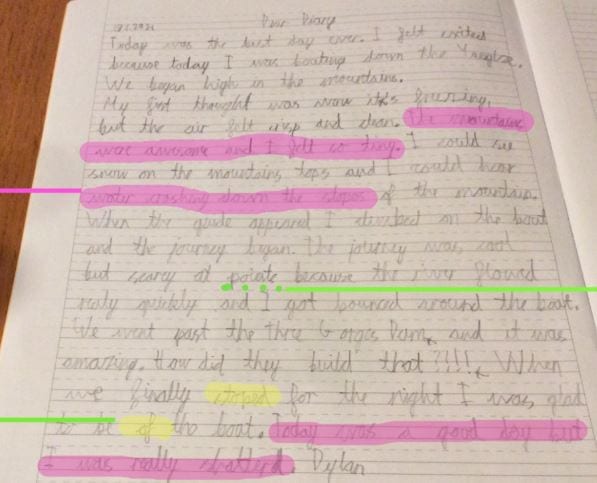 Dear Diary
Today was the best day ever. I felt exited
because today I was boating down the Yangtze.
We began high in the mountains.
My first thought was wow it's freezing,
but the air felt crisp and clean. The mountains
were awesome and I felt so tiny. I could see
snow on the mountains tops and I could hear
water crashing down the slopes of the mountain.
When the guide appeared I climbed on the boat
and the journey began. The journey was cool
but scary at points because the river flowed
realy quickly and I got bounced around the boat.
We went past the Three Gorges Dam, and it was
amazing. How did they build that?!!!! When
we finally stoped for the night I was glad
to be of the boat. Today was a good day but
I was really shatterd. Dylan